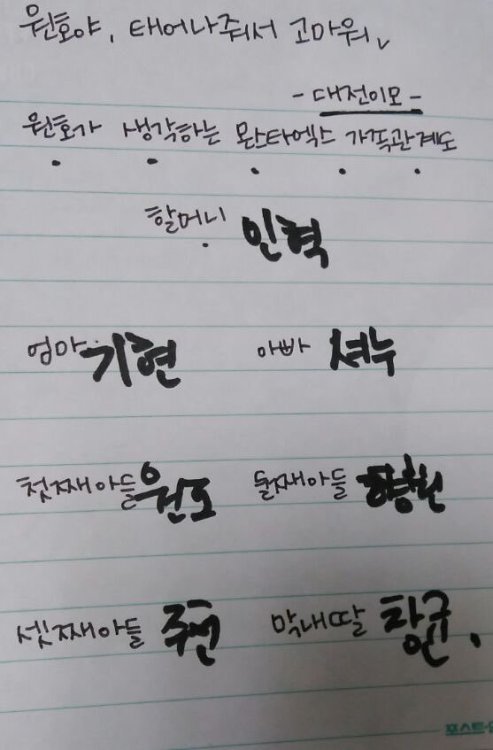 원호야, 태어나줘서 고마워
- 대전이모 -
원호가 생각하는 몬스타엑스 가족관계도
할머니 민혁
엄마 기현 아빠 셔누
첫째아들 원호 둘째아들 형원
셋째아들 주헌 막내딸 창균.
포스트